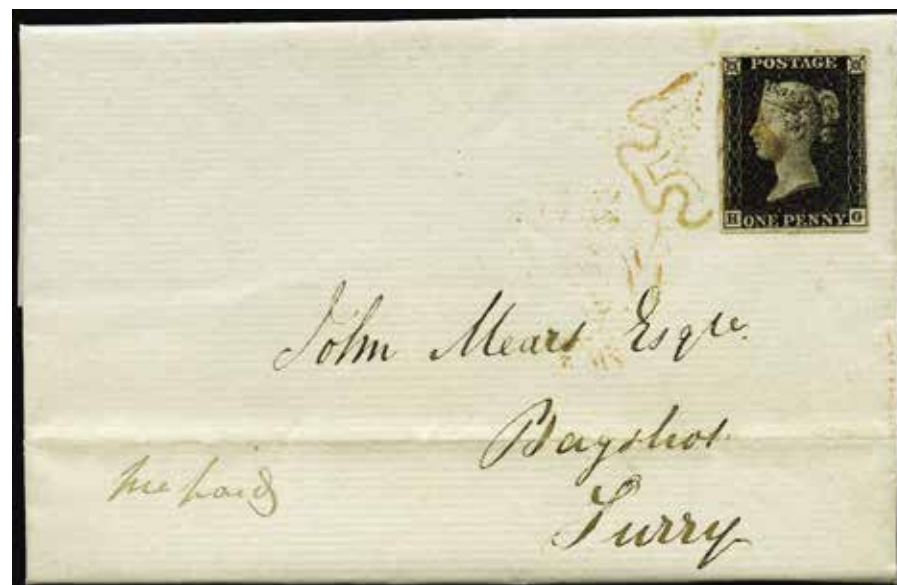 POSTAGE
H ONE PENNY G
John Mears Esqre.
Bagshot.
Surry
paid